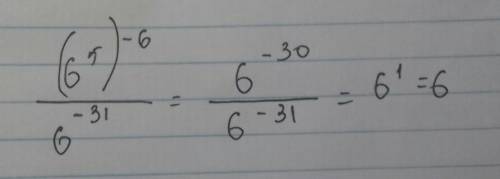 (6^5)^-6 / 6^-31 = 6^-30 / 6^-31 = 6^1 = 6